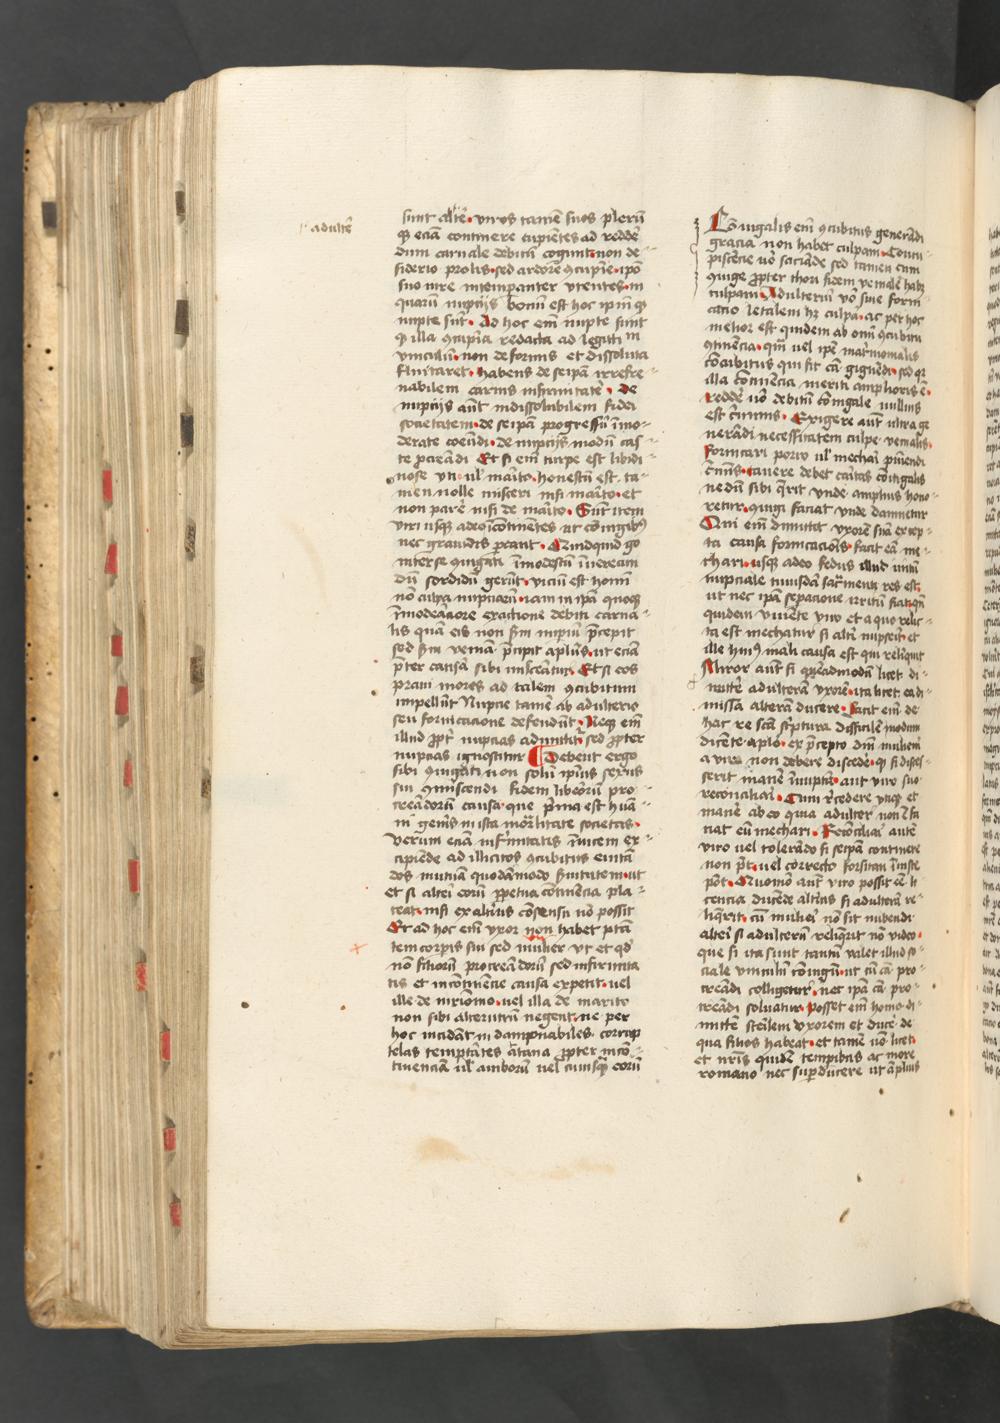 adulte᷉
sunt alte᷉. viros tame᷉ suos pleru᷉
q᷉ ecia᷉ continere cupie᷉tes ad redde᷉
dum carnale debitu᷉ cogunt. non de
siderio prolis. sed ardore᷉ ꝯcupi᷉e. ip᷉o
suo iure inte᷉panter vtentes. in
quaru᷉ nupcijs bonu᷉ est hoc ip᷉m q᷉
nupte su᷉t. Ad hoc em᷉ nupte sunt
q᷉ illa ꝯcupi᷉a redacta ad legitimu᷉
vinculu᷉. non deformis et dissoluta
fluitaret. habens de seip᷉a irrefre
nabilem carnis infirmitate᷉. de
nupcijs aut᷉ indissolubilem fidei
societatem. de seip᷉a progressu᷉ i᷉mo
derate coeu᷉di. de nupcijs modu᷉ cas
te ꝓcrea᷉di Et si em᷉ turpe est libidi
nose vti vl᷉ ma᷉ito. honestu᷉ est ta
men nolle misceri nisi ma᷉ito. et
non pare᷉ nisi de ma᷉ito. Su᷉t item
viri usq᷉ adeo i᷉co᷉tine᷉tes ut co᷉iugib᷉
nec grauidis ꝑcant. Quidquid g᷉o
inter se ꝯiugati i᷉modestu᷉ i᷉uerecun
du᷉ sordidu᷉ geru᷉t. viciu᷉ est homi᷉
no᷉ culpa nupciaru᷉. iam in ip᷉a quoq᷉
i᷉modera᷉ciore exactione debiti carna
lis qua᷉ eis non s᷉m imp᷉iu᷉ p᷉cepit
sed s᷉m venia᷉ p᷉cipit apl᷉us. ut ecia᷉
p᷉ter causa᷉ sibi misceantur. Et si eos
praui mores ad talem ꝯcubitum
impellu᷉t Nupcie tame᷉ ab adulterio
seu fornicacione defendu᷉t. Neq᷉ em᷉
illud ꝓpt᷉ nupcias admittit᷉. sed ꝓpter
nupcias ignoscitur Debent ergo
sibi ꝯiugati non solu᷉ ip᷉ius sexus
sui ꝯmiscendi fidem liberoru᷉ pro
crea᷉doru᷉ causa. que p᷉ma est hua᷉
ni gen᷉is in ista mor᷉litate societas.
veru᷉m ecia᷉ infirmitatis i᷉uicem ex
cipie᷉de ad illicitos ꝯcubitus euita᷉
dos mutua᷉ quoda᷉modo s᷉uitutem. ut
et si alte᷉i eoru᷉ ꝑpetua co᷉tine᷉cia pla
ceat. nisi ex alt᷉ius co᷉sensu no᷉ possit
Et ad hoc em᷉ vxor non habet p᷉ta
tem corp᷉is sui sed mulier vt et qd᷉
no᷉ filioru᷉ procrea᷉doru᷉ sed infirmita
tis et inco᷉tine᷉cie causa expetit. vel
ille de mr᷉imo᷉io. uel illa de marito
non sibi alterutru᷉ negent. ne per
hoc incida᷉t in dampnabiles corrup
telas tempta᷉tes sathana ꝓpter inco᷉
tinencia᷉ ul᷉ amboru᷉ uel cuiusq᷉ eoru᷉
Co᷉iugalis em᷉ ꝯcubitus genera᷉di
gracia non habet culpam. Concu
piscencie uo᷉ sacia᷉de sed tamen cum
ꝯiuge ꝓpter thori fidem veniale᷉ hab᷉
culpam. Adulteriu᷉ vo᷉ siue forni
cacio letalem h᷉z culpa᷉. ac per hoc
melior est quidem ab om᷉i ꝯcubitu
ꝯtine᷉cia. qm᷉ uel ip᷉e mat᷉imonialis
co᷉cubitus qui fit ca᷉ gigne᷉di. sed q᷉r
illa co᷉tinencia meriti amplioris e᷉.
redde᷉ uo᷉ debitu᷉ co᷉iugale nullius
est c᷉iminis. Exigere aut᷉ ultra ge
nera᷉di necessitatem culpe venialis.
fornicari porro ul᷉ mechari pu᷉iendi
c᷉imi᷉s. cauere debet caritas co᷉iugalis
ne du᷉ sibi q᷉rit vnde amplius hono
retur. ꝯiugi faciat vnde damnetur
Qui em᷉ dimittit vxore᷉ sua᷉ excep
ta causa fornicacio᷉is. facit ea᷉ me
chari. usq᷉ adeo fedus illud initu᷉
nupciale cuiusda᷉ sac᷉menti res est.
ut nec ip᷉a sepacione irritu᷉ fiat. qn᷉
quidem viue᷉te viro et a quo relic
ta est mechatur si alt᷉i nups᷉it. et
ille hui᷉ mali causa est qui reliquit
Miror aut᷉ si quemadmodu᷉ licet di
mitte᷉ adultera᷉ vxore᷉. ita licet ea di
missa alteram ducere. Facit em᷉ de
hac re sc᷉a sc᷉iptura difficile᷉ nodum
dice᷉te ap᷉lo. ex p᷉cepto dni᷉ muliere᷉
a viro non debere discede᷉. q᷉ si disces
serit mane᷉ i᷉nupta᷉. aut viro suo
reconciliari. Cum r᷉cedere vtiq᷉ et
mane᷉ ab eo qui adulter non e᷉ fa
ciat eu᷉ mechari. Reco᷉ciliari aute᷉
viro uel tolera᷉do si seip᷉a continere
non p᷉t. uel correcto forsitan iuste
po᷉t. Quomo᷉ aut᷉ viro possit ee᷉ li
cencia duce᷉de alt᷉ius si adultera᷉ re
liq᷉rit. cu᷉ mulie᷉i no᷉ sit nubendi
alte᷉i si adulteru᷉ reliq᷉rit no᷉ video.
que si ita sunt tantu᷉ valet illud so
ciale vinculu᷉ co᷉iugu᷉. ut cu᷉ ca᷉ pro
crea᷉di colligetur. nec ip᷉a ca᷉ pro
crea᷉di soluatur. Posset em᷉ homo di
mitte᷉ sterilem vxorem et duce᷉ de
qua filios habeat. et tame᷉ uo᷉ licet.
et nr᷉is quide᷉ tempibus ac more
romano nec sup᷉ducere ut amplius